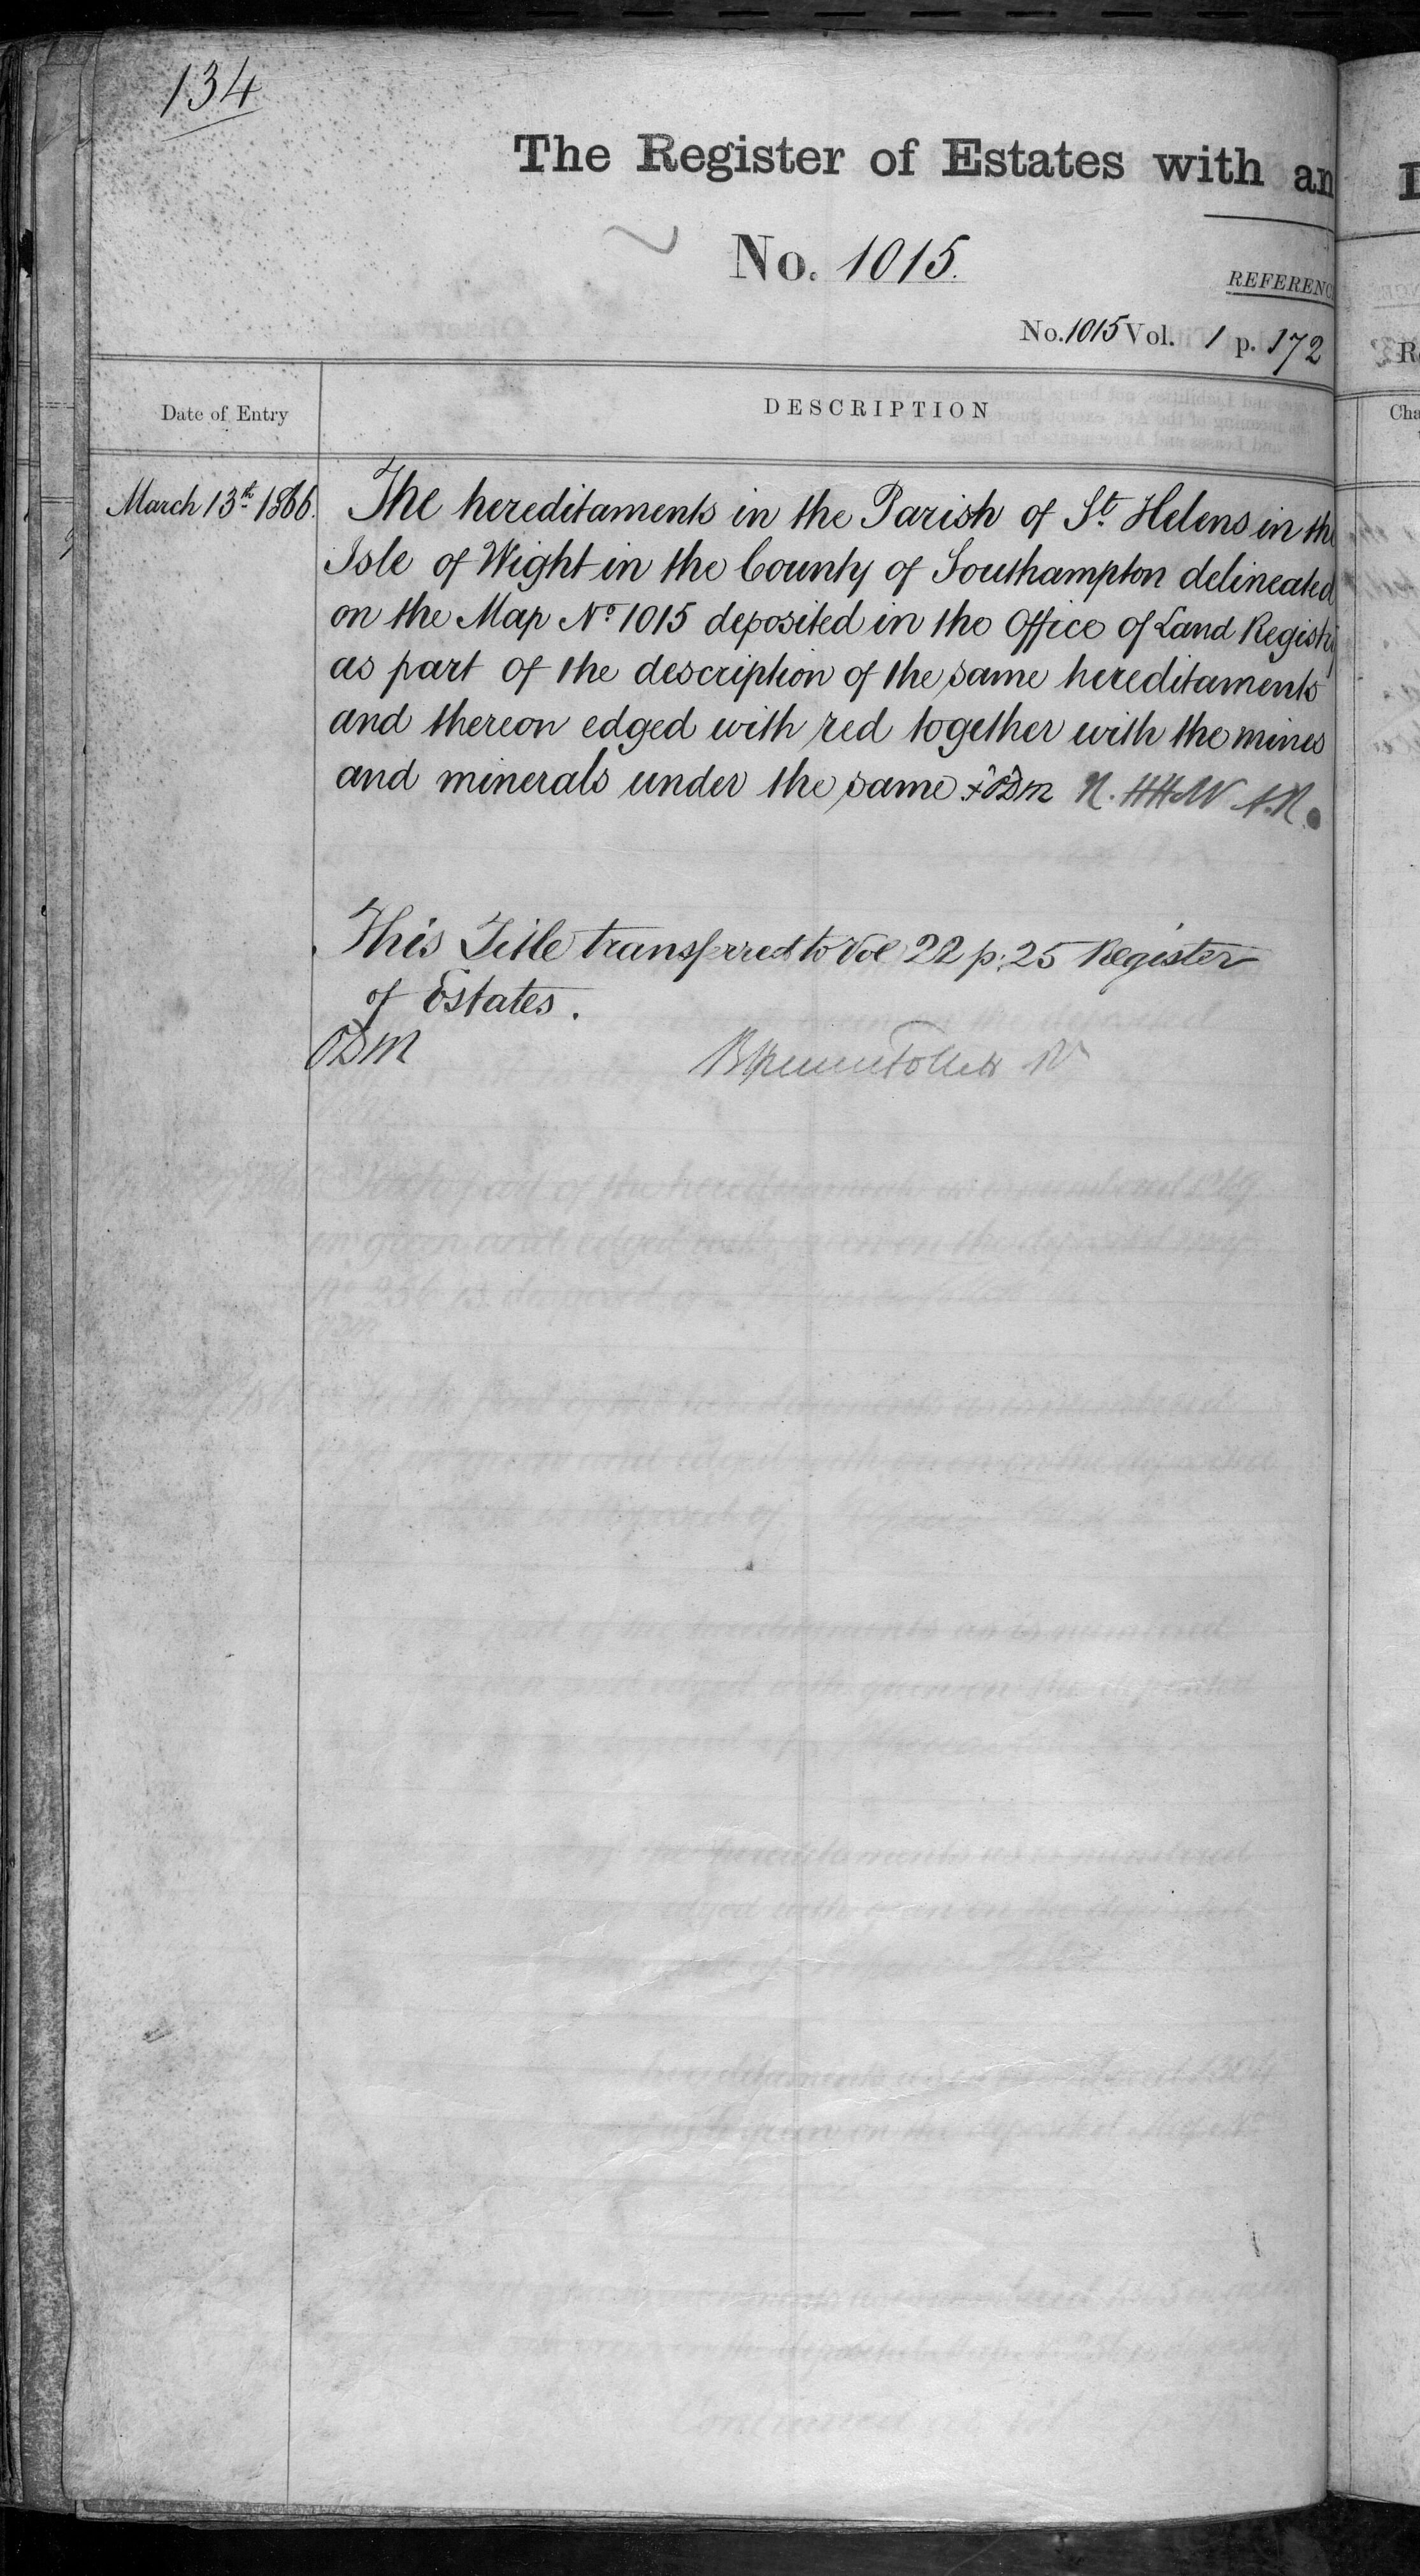 134
The Register of Estates with an
No. 1015.
REFERENC
No. 1015 Vol. 1 p. 172
Date of Entry
DESCRIPTION
March 13th 1866.
The hereditaments in the Parish of St. Helens in the
Isle of Wight in the County of Southampton delineated
on the Map No 1015 deposited in the Office of Land Registry
as part of the description of the same hereditaments
and thereon edged with red together with the mines
and minerals under the same
This Title transferred to Vol 22 p. 25 Register
of Estates.
ODM